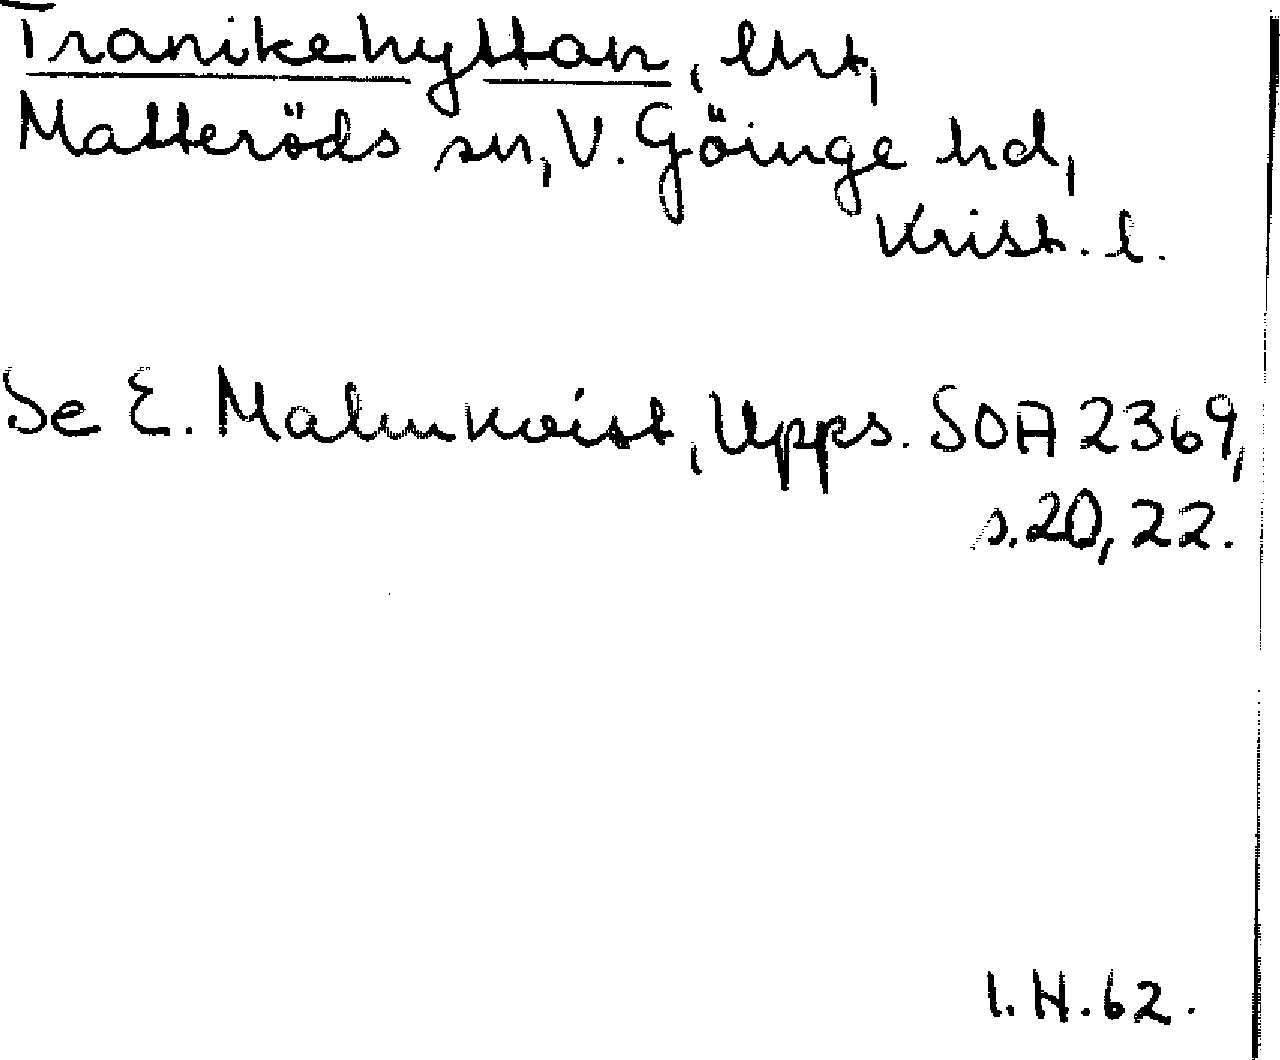 Tranikehyttan, lht,
Matteröds sn, V. Göinge hd,
Krist. l.
Se E. Malmkvist, Upps. SOA 2369,
s. 20, 22.
I. H. 62.